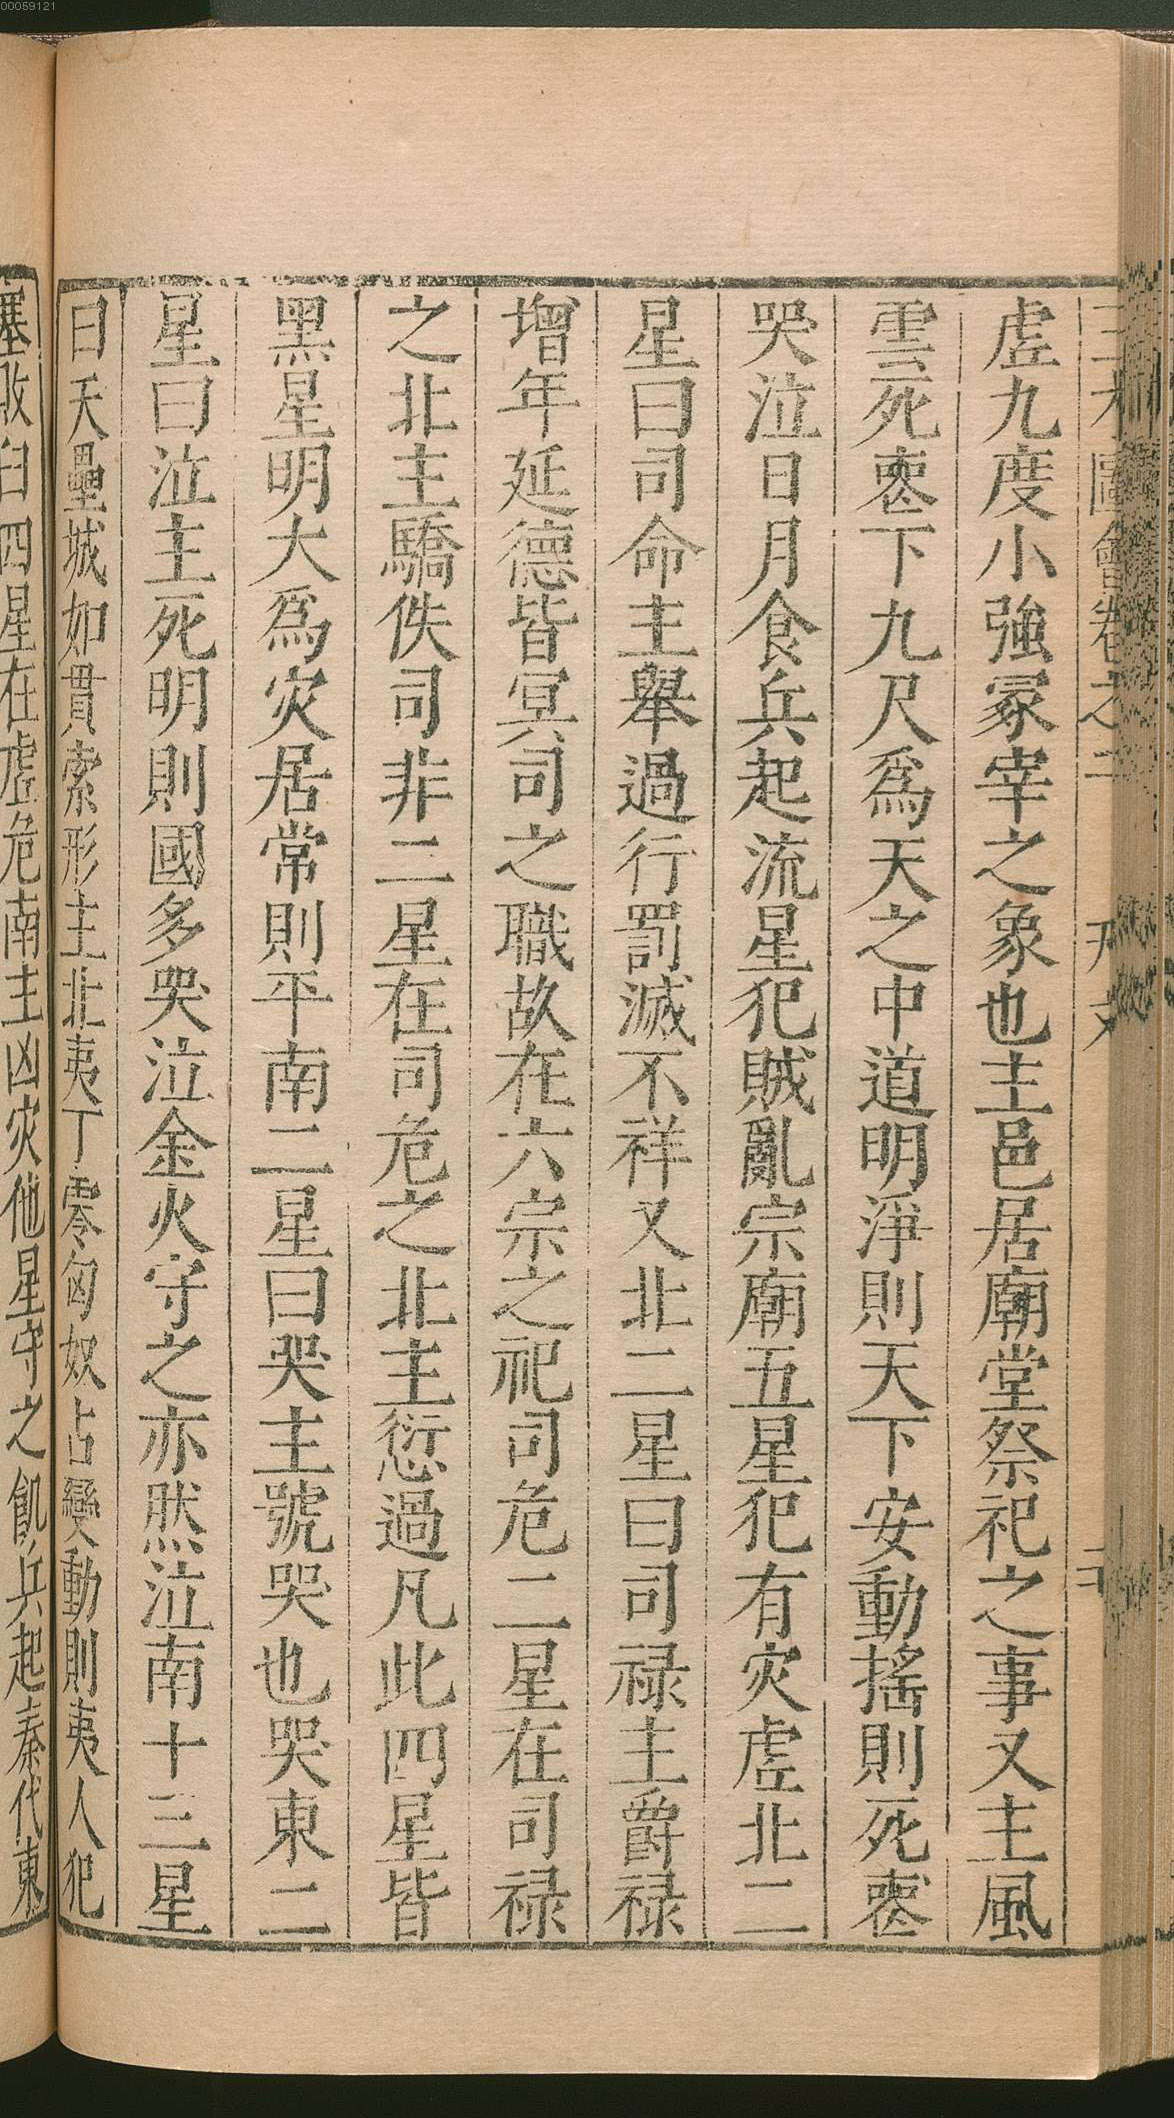 00059121
三才圖會卷之二 天文 二十
虛九度小強冢宰之象也主邑居廟堂祭祀之事又主風
雲死喪下九尺爲天之中道明淨則天下安動搖則死喪
哭泣日月食兵起流星犯賊亂宗廟五星犯有灾虛北二
星曰司命主舉過行罰滅不祥又北二星曰司禄主爵禄
增年延德皆冥司之職故在六宗之祀司危二星在司禄
之北主驕佚司非二星在司危之北主愆過凡此四星皆
黑星明大爲灾居常則平南二星曰哭主號哭也哭東二
星曰泣主死明則國多哭泣金火守之亦然泣南十三星
曰天壘城如貫索形主北夷丁零匈奴占變動則夷人犯
塞敗臼四星在虛危南主凶灾他星守之飢兵起秦代東